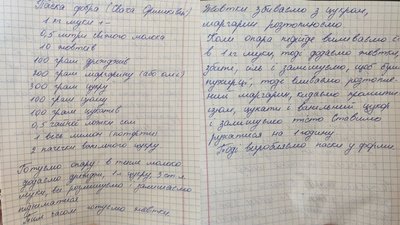 Паска добра (Хача )
1 кг муки +-
0,5 літри свіжого молока
10 жовтків
100 грам дріжджів
200 грам маргарину (або олії)
300 грам цукру
100 грам ізюму
100 грам цукатів
0,5 чайної ложки солі
1 весь лимон (потерти)
2 пачечки ванільного цукру
Готуємо опару: в тепле молоко
додаємо дріжджі, 1 л цукру, 3 ст л
муки, все розмішуємо і залишаємо
підніматися
Тим часом готуємо жовтки
Жовтки збиваємо з цукром,
маргарин розтоплюємо.
Коли опара підійде виливаємо її
в 1 кг муки, тоді додаємо жовтки,
збиті, сіль і замішуємо, щоб були
пухирці, тоді вливаємо розтопле-
ний маргарин, кидаємо
ізюм, цукати і ванільний цукор
і замішуємо тісто ставимо
рухатися на 1 годину
Тоді виробляємо паски у форми.